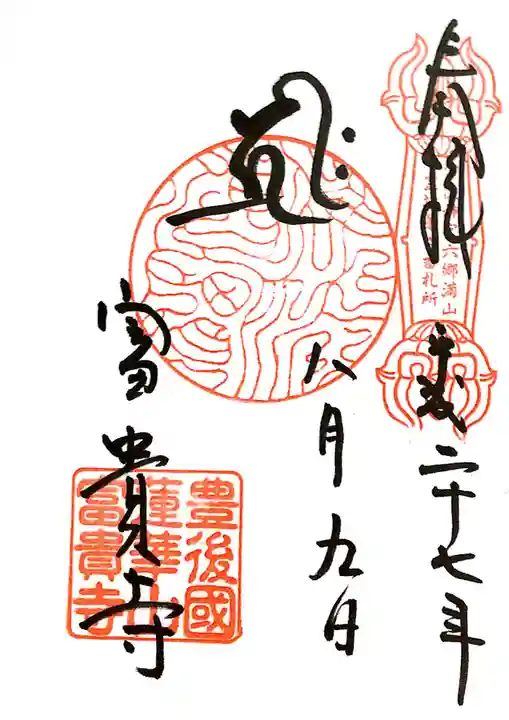 奉拝
平成二十七年
八月九日
富貴寺
六郷満山
札所
豊後國
蓮華山
富貴寺